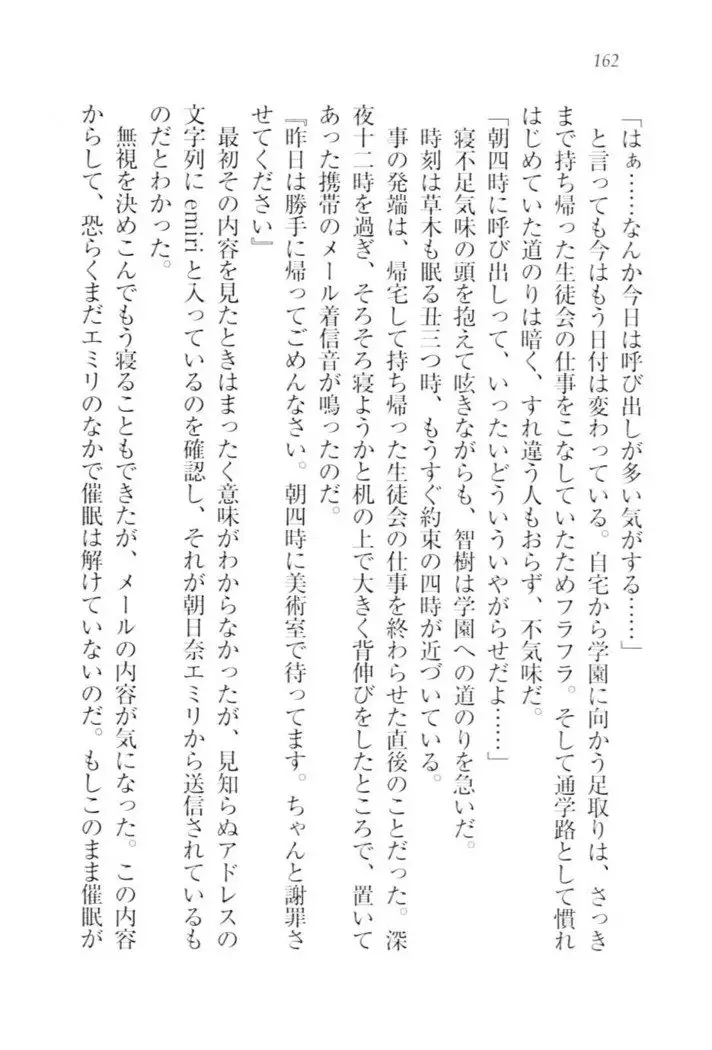 162
「はぁ……なんか今日は呼び出しが多い気がする……」
と言っても今はもう日付は変わっている。自宅から学園に向かう足取りは、さっき
まで持ち帰った生徒会の仕事をこなしていたためフラフラ。そして通学路として慣れ
はじめていた道のりは暗く、すれ違う人もおらず、不気味だ。
「朝四時に呼び出しって、いったいどういういやがらせだよ……」
寝不足気味の頭を抱えて呟きながらも、智樹は学園への道のりを急いだ。
時刻は草木も眠る丑三つ時、もうすぐ約束の四時が近づいている。
事の発端は、帰宅して持ち帰った生徒会の仕事を終わらせた直後のことだった。深
夜十二時を過ぎ、そろそろ寝ようかと机の上で大きく背伸びをしたところで、置いて
あった携帯のメール着信音が鳴ったのだ。
『昨日は勝手に帰ってごめんなさい。朝四時に美術室で待ってます。ちゃんと謝罪さ
せてください』
最初その内容を見たときはまったく意味がわからなかったが、見知らぬアドレスの
文字列に emiri と入っているのを確認し、それが朝日奈エミリから送信されているも
のだとわかった。
無視を決めこんでもう寝ることもできたが、メールの内容が気になった。この内容
からして、恐らくまだエミリのなかで催眠は解けていないのだ。もしこのまま催眠が